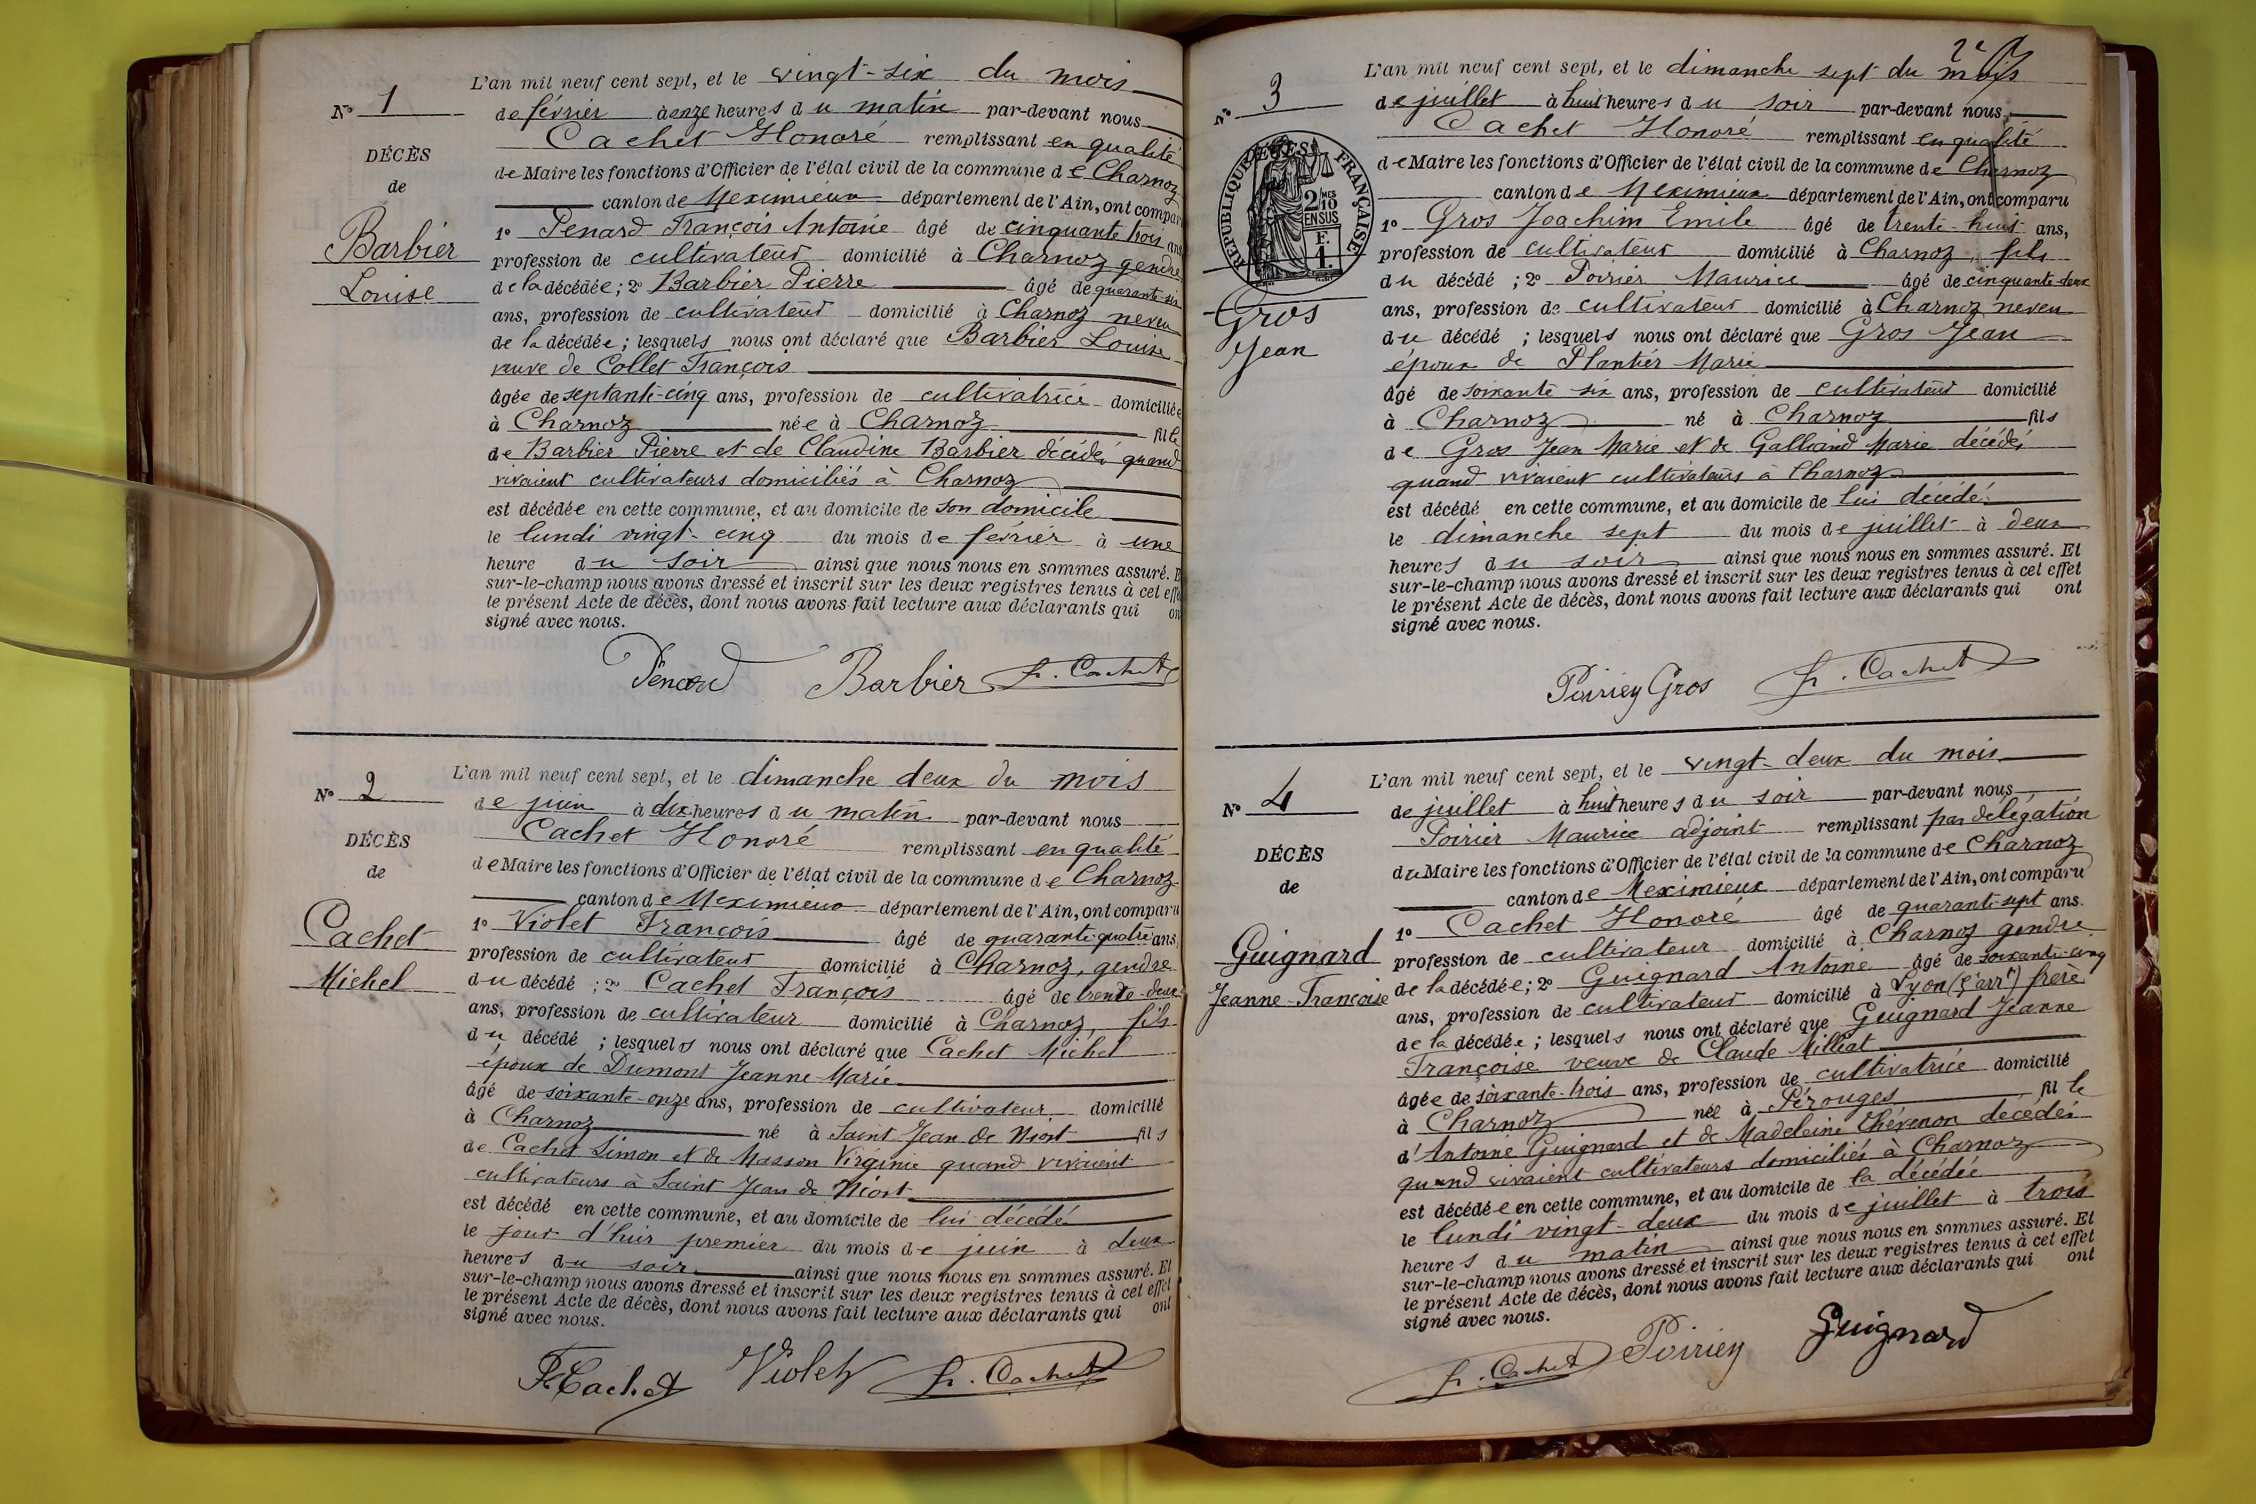 L'an mil neuf cent sept, et le vingt-six du mois
N° 1
de février à onze heures du matin par-devant nous
Cachet Honoré remplissant en qualité
DÉCÈS
de Maire les fonctions d'Officier de l'état civil de la commune de Charnoz
de
canton de Meximieux département de l'Ain, ont comparu
1° Penard François Antoine âgé de cinquante trois ans
Barbier
profession de cultivateur domicilié à Charnoz gendre
Louise
de la décédée ; 2° Barbier Pierre âgé de quarante-six
ans, profession de cultivateur domicilié à Charnoz neveu
de la décédée ; lesquels nous ont déclaré que Barbier Louise
veuve de Collet François
âgée de septante-cinq ans, profession de cultivatrice domiciliée
à Charnoz née à Charnoz fille
de Barbier Pierre et de Claudine Barbier décédés quand
vivaient cultivateurs domiciliés à Charnoz
est décédée en cette commune, et au domicile de son domicile
le lundi vingt-cinq du mois de février à une
heure du soir ainsi que nous nous en sommes assuré. E
sur-le-champ nous avons dressé et inscrit sur les deux registres tenus à cet effe
le présent Acte de décès, dont nous avons fait lecture aux déclarants qui on
signé avec nous.
Penard Barbier h. Cachet
L'an mil neuf cent sept, et le dimanche deux du mois
N° 2
de juin à dix heures du matin par-devant nous
Cachet Honoré remplissant en qualité
DÉCÈS
de Maire les fonctions d'Officier de l'état civil de la commune de Charnoz
de
canton de Meximieux département de l'Ain, ont comparu
1° Violet François âgé de quarante-quatre ans,
Cachet
profession de cultivateur domicilié à Charnoz, gendre
Michel
du décédé ; 2° Cachet François âgé de trente-deux
ans, profession de cultivateur domicilié à Charnoz, fils
du décédé ; lesquels nous ont déclaré que Cachet Michel
époux de Dumont Jeanne Marie
âgé de soixante-onze ans, profession de cultivateur domicilié
à Charnoz né à Saint Jean de Niost fils
de Cachet Simon et de Masson Virginie quand vivaient
cultivateurs à Saint Jean de Niost
est décédé en cette commune, et au domicile de lui décédé
le jour d'hier premier du mois de juin à deux
heures du soir ainsi que nous nous en sommes assuré. Et
sur-le-champ nous avons dressé et inscrit sur les deux registres tenus à cet effet
le présent Acte de décès, dont nous avons fait lecture aux déclarants qui ont
signé avec nous.
F Cachet Violet h. Cachet
2e
L'an mil neuf cent sept, et le dimanche sept du mois
N° 3
de juillet à huit heures du soir par-devant nous
Cachet Honoré remplissant en qualité
de Maire les fonctions d'Officier de l'état civil de la commune de Charnoz
canton de Meximieux département de l'Ain, ont comparu
RÉPUBLIQUE FRANÇAISE
2/10 EN SUS
1° Gros Joachim Emile âgé de trente-huit ans,
profession de cultivateur domicilié à Charnoz fils
du décédé ; 2° Poirier Maurice âgé de cinquante-deux
Gros
ans, profession de cultivateur domicilié à Charnoz neveu
Jean
du décédé ; lesquels nous ont déclaré que Gros Jean
époux de Plantier Marie
âgé de soixante six ans, profession de cultivateur domicilié
à Charnoz né à Charnoz fils
de Gros Jean Marie et de Galland Marie décédés
quand vivaient cultivateurs à Charnoz
est décédé en cette commune, et au domicile de lui décédé
le dimanche sept du mois de juillet à deux
heures du soir ainsi que nous nous en sommes assuré. Et
sur-le-champ nous avons dressé et inscrit sur les deux registres tenus à cet effet
le présent Acte de décès, dont nous avons fait lecture aux déclarants qui ont
signé avec nous.
Poirier Gros h. Cachet
L'an mil neuf cent sept, et le vingt-deux du mois
N° 4
de juillet à huit heures du soir par-devant nous
Poirier Maurice adjoint remplissant par délégation
DÉCÈS
du Maire les fonctions d'Officier de l'état civil de la commune de Charnoz
de
canton de Meximieux département de l'Ain, ont comparu
1° Cachet Honoré âgé de quarante-sept ans.
Guignard
profession de cultivateur domicilié à Charnoz gendre
Jeanne-Françoise
de la décédée ; 2° Guignard Antoine âgé de soixante-cinq
ans, profession de cultivateur domicilié à Lyon ( arrt) frère
de la décédée ; lesquels nous ont déclaré que Guignard Jeanne
Françoise veuve de Claude Milliat
âgée de soixante-trois ans, profession de cultivatrice domicilié
à Charnoz née à Pérouges fille
d'Antoine Guignard et de Madeleine Thévenon décédés
quand vivaient cultivateurs domiciliés à Charnoz
est décédée en cette commune, et au domicile de la décédée
le lundi vingt-deux du mois de juillet à trois
heures du matin ainsi que nous nous en sommes assuré. Et
sur-le-champ nous avons dressé et inscrit sur les deux registres tenus à cet effet
le présent Acte de décès, dont nous avons fait lecture aux déclarants qui ont
signé avec nous.
h. Cachet Poirier Guignard